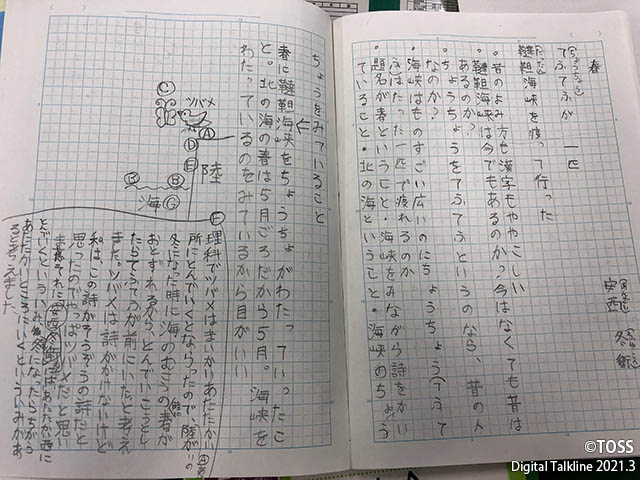 春
安西 冬衛
てふてふが 一匹
韃靼海峡を渡って行った
・昔のよみ方も漢字もややこしい
・韃靼海峡は今でもあるのか?今はなくても昔は
あるのか?
・ちょうちょうをてふてふというのなら、昔の人
なのか?
・海峡はものすごい広いのにちょうちょう(てふて
ふ)はたった一匹で渡れるのか
・題名が春ということ・海峡をみながら詩をかい
ていること・北の海ということ・海峡のちょう
ちょうをみていること
春に韃靼海峡をちょうちょがわたっていったこ
と。北の海の春は5月ごろだから5月。海峡を
わたっているのをみているから目がいい
ツバメ
C
A
D
E
陸
B
B
海
G
F
理科でツバメはまっかりあたたかい
所にとんでいくとならったので、陸が
冬になった時に海のむこうの春が
おとずれるから、とんでいこうとし
たらてふてふが前にいたと考え
ました。ツバメは詩がかけないけど
私は、この詩がそうぞうの詩だと
思ったのでやっぱツバメだと思い
ます。
とんでいくといういみ
あたたかいところにいくといういみかな
あるとも考えました
©TOSS
Digital Talkline 2021.3